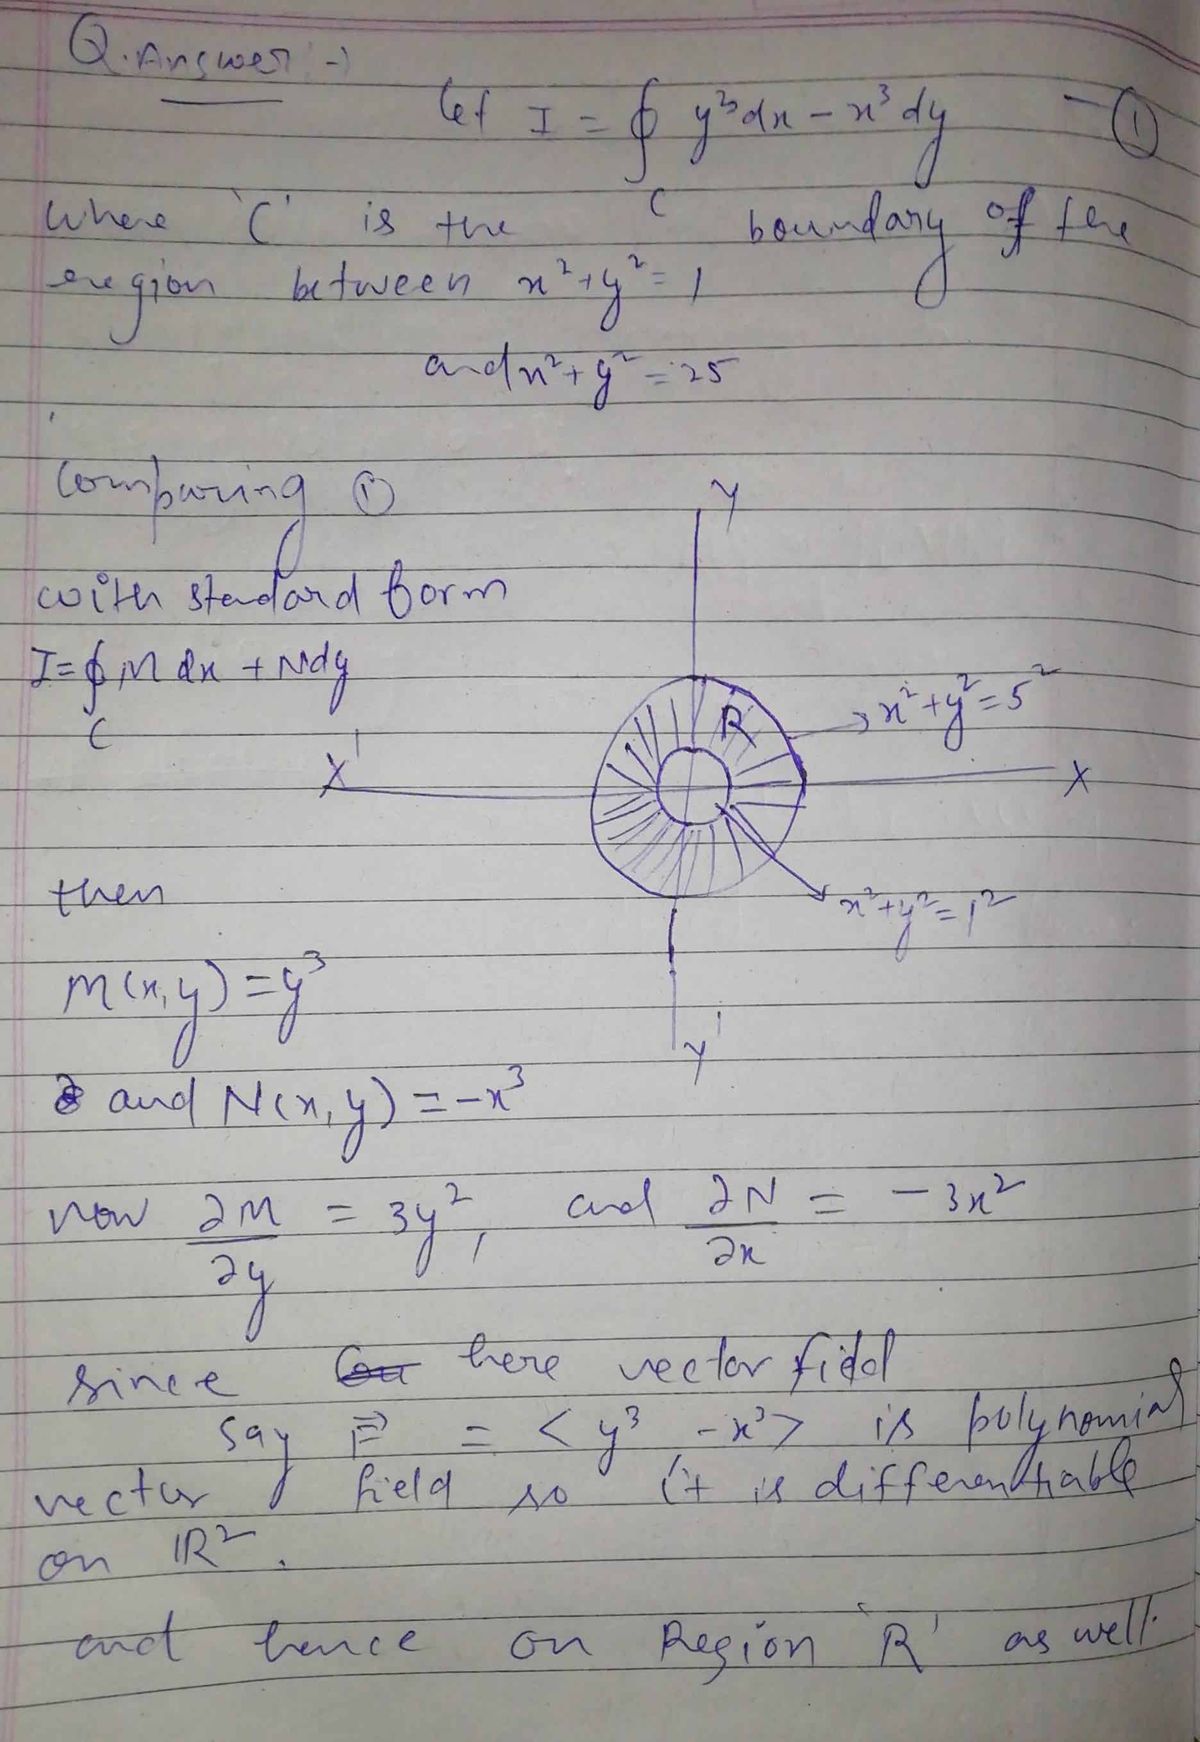 Q. Answer :-
Let I = ∮ y³dx - x³dy - ①
C
where 'C' is the boundary of the
region between x²+y² = 1
and x²+y² = 25
Comparing ①
with standard form
I = ∮ M dx + N dy
C
Y
R
x²+y²=5²
X'
X
x²+y²=1²
Y'
then
M(x,y) = y³
and N(x,y) = -x³
now ∂M/∂y = 3y², and ∂N/∂x = -3x²
since here vector fidd
say F⃗ = <y³, -x³> is polynomial
vector field so it is differentiable
on ℝ².
and hence on Region 'R' as well.